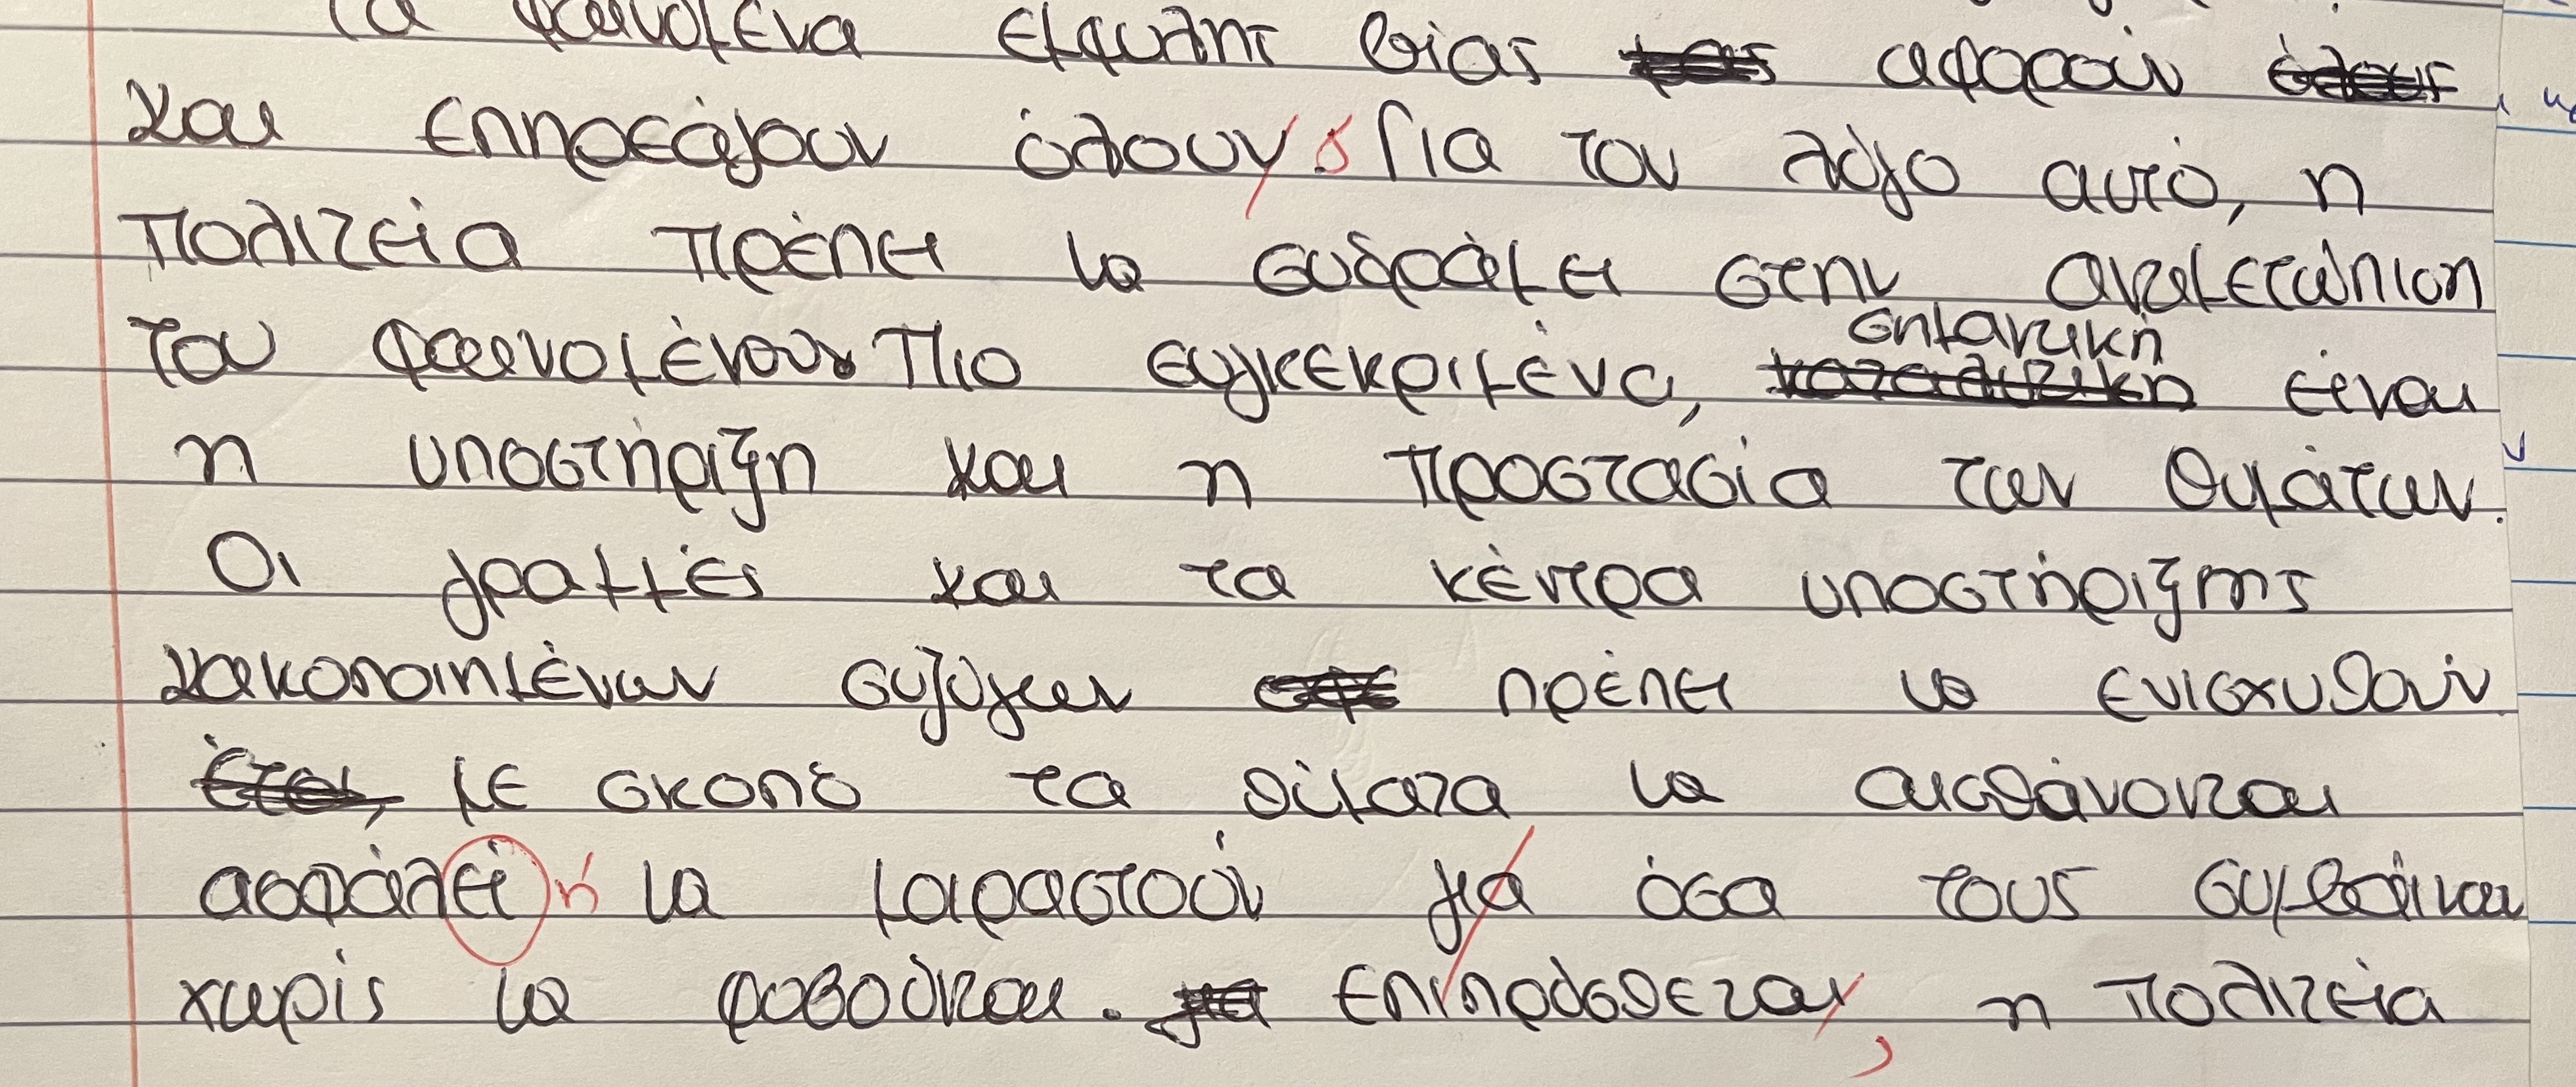 Τα φαινόμενα έμφυλης βίας αφορούν
και επηρεάζουν όλουν ς Για τον λόγο αυτό, η
πολιτεία πρέπει να συδράμει στην αντιμετώπιση
του φαινομένους Πιο συγκεκριμένα, σημαντική είναι
η υποστήριξη και η προστασία των θυμάτων.
Οι γραμμές και τα κέντρα υποστήριξης
κακοποιημένων συζύγων πρέπει να ενισχυθούν
έτσι, με σκοπό τα θύματα να αισθάνονται
ασφάλεί ή να μοιραστούν για όσα τους συμβαίνει
χωρίς να φοβούνται. για Επιπρόσθεται, η πολιτεία